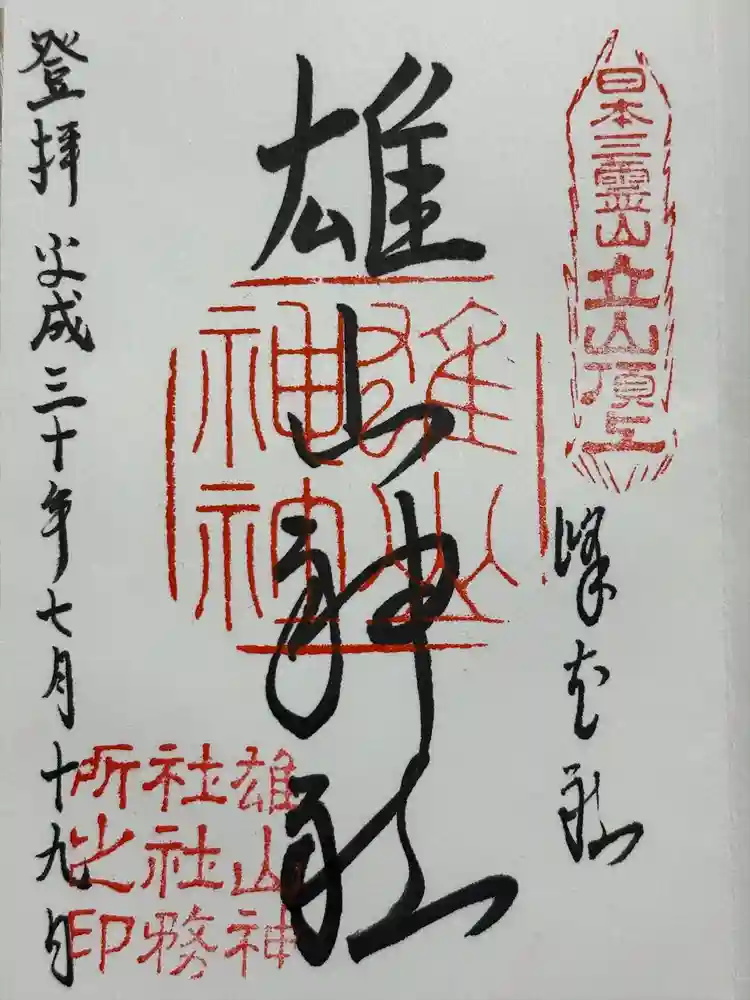 日本三霊山立山頂上
峰本社
雄山神社
雄山
神社
雄山神
社社務
所之印
登拝 平成三十年七月十九日